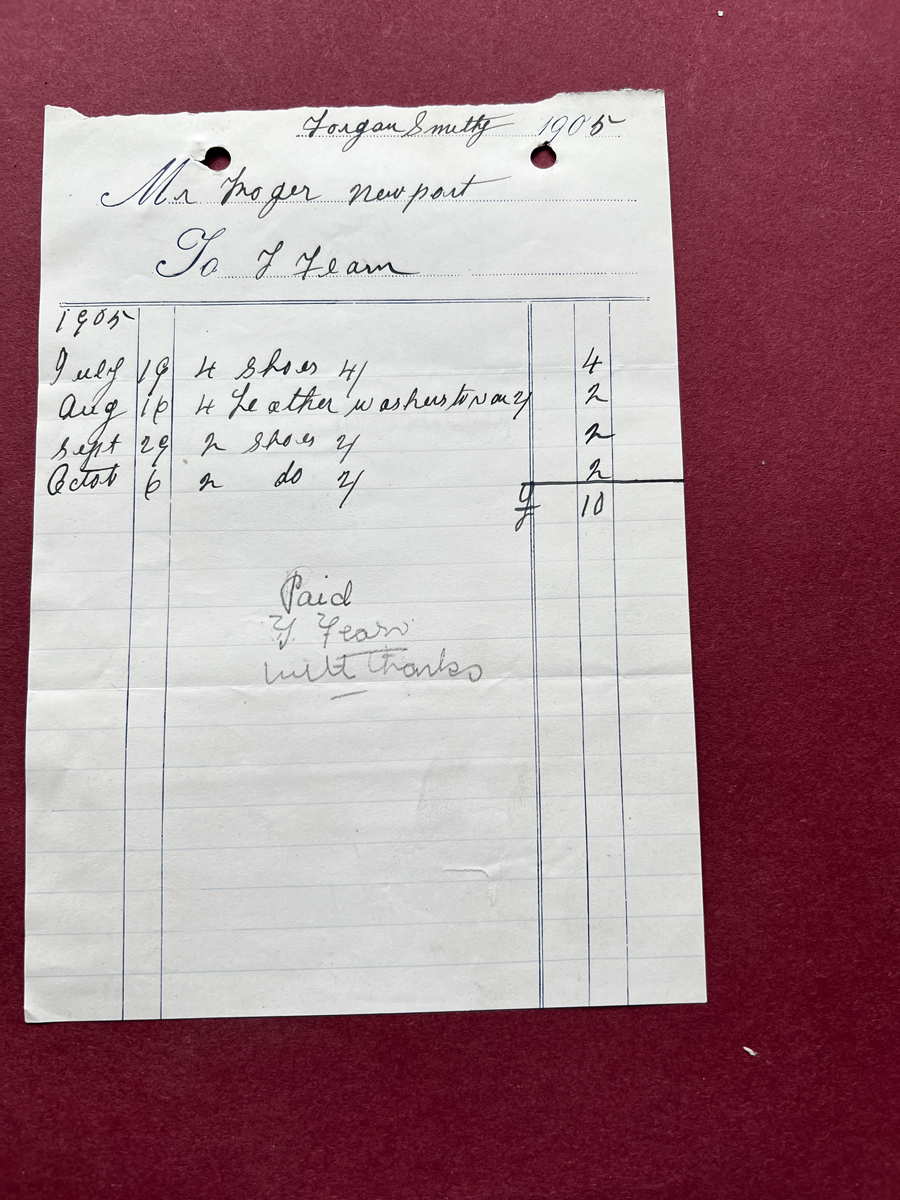 Forgan Smithy 1905
Mr Roger Newport
To J Fearn
1905
July 19 4 Shoes 4/ 4
Aug 16 4 Leather washers to van 2/ 2
Sept 29 2 Shoes 2/ 2
Octob 6 2 do 2/ 2
£ 10
Paid
J. Fearn
with thanks